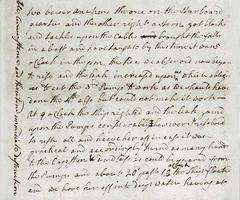 two bower anchors the one on the Starboard
quarter and the other right a stern got blocks
and tackles upon the Cables brought the falls
in abaft and hove taught by this time it was
5 oClock in the pm the tide we observed now began
to rise and the leak increased upon us which oblig'd
us to set the 3rd Pump to work as we should have
done the 4th also but could not make it work
At 9 oClock the Ship righted and the leak gain'd
upon the Pumps considerably however I resolved
to resk all and heave her off in case it was
practical and accordingly turnd as many hands
to the Capstan & as could be spared from
the Pumps and about 20' past 10 oClock the Ship floated
and we hove her off into deep water having at